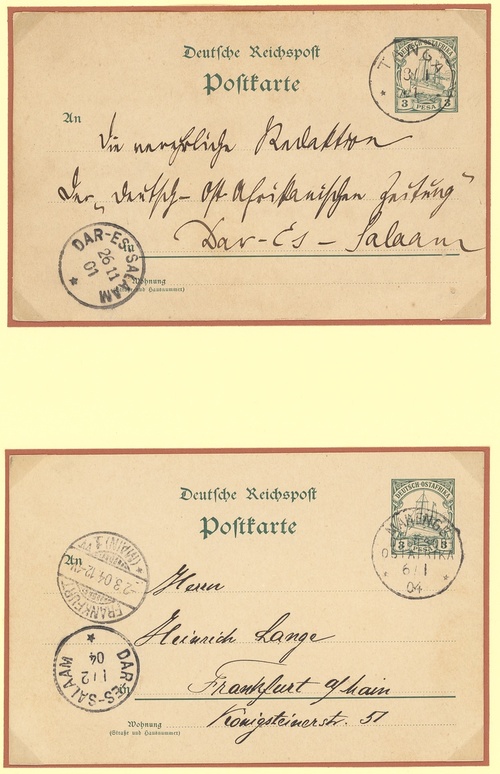 Deutsche Reichspost
DEUTSCH-OSTAFRIKA
TANGA
3 PESA 3
Postkarte
An
Die verehrliche Redaktion
der „Deutsch-Ost-Afrikanischen Zeitung"
Dar-Es-Salaam
DAR-ES-SALAAM
26 11
01
Wohnung
(Straße und Hausnummer)
Deutsche Reichspost
DEUTSCH-OSTAFRIKA
Postkarte
3 3
OSTAFRIKA
6/1
04
An
FRANKFURT (MAIN)
2.3.04
Herrn
Heinrich Lange
DAR-ES-SALAAM
1/2
04
Frankfurt a/Main
Königsteinerstr. 51
Wohnung
(Straße und Hausnummer)